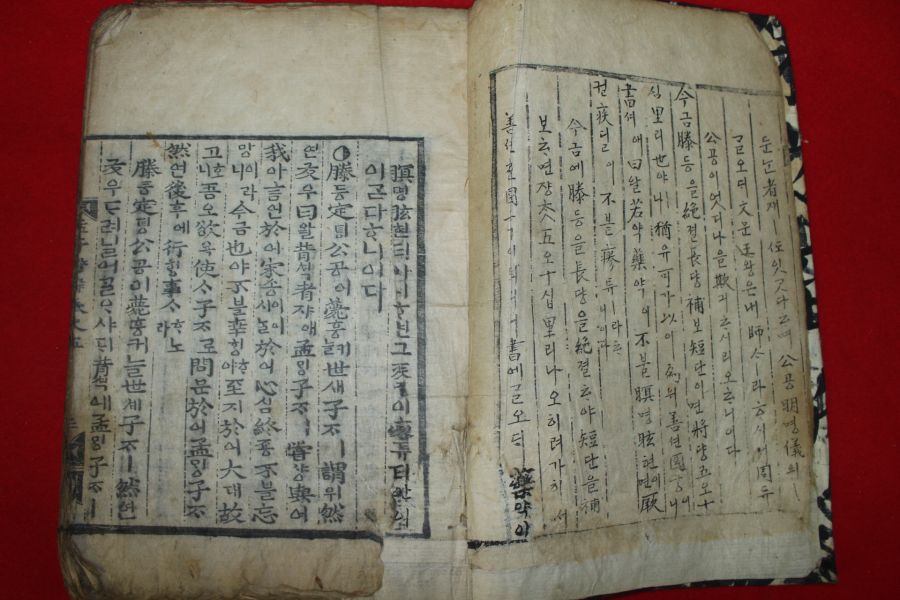 둔눈者쟈ㅣ 잇다ᄒᆞ며 公공明명儀의ㅣ
ᄀᆞᆯ오ᄃᆡ 文문王왕은내 師ᄉᆞㅣ라ᄒᆞ시니 周쥬
公공이엇디나을欺긔ᄒᆞ시리오ᄒᆞ니이다
今금滕등을絶졀長댱補보短단이면將쟝五오十
십里리也야ㅣ나 猶유可가以이爲위善션國국이니
書셔애曰왈若약藥약이不블瞑명眩현이면厥
궐疾딜이 不블瘳튜ㅣ라ᄒᆞ니이다
今금에滕등을長댱을絶졀ᄒᆞ야短단을補
보ᄒᆞ면쟝ᄎᆞᆺ五오十십里리나오히려가히 써
善션ᄒᆞᆫ國국이되리니書셔에ᄀᆞᆯ오ᄃᆡ 藥약이
瞑명眩현티아니ᄒᆞ면그疾딜이瘳튜티안인
이ᄀᆞᆮ다ᄒᆞ니이다
○滕등定뎡公공이薨훙커ᄂᆞᆯ世셰子ᄌᆞㅣ謂위然
연友우曰왈昔셕者쟈애孟ᄆᆡᆼ子ᄌᆞㅣ嘗샹與여
我아言언於어宋송이어시ᄂᆞᆯ於어心심終죵不블忘
망이라今금也야不블幸ᄒᆡᆼᄒᆞ야至지於어大대故
고호니吾오欲욕使ᄉᆞ子ᄌᆞ로問문於어孟ᄆᆡᆼ子ᄌᆞ
然연後후에行ᄒᆡᆼ事ᄉᆞᄒᆞ노라
滕등定뎡公공이薨훙커늘世셰子ᄌᆞㅣ然연
友우ᄃᆞ려닐어ᄀᆞᆯᄋᆞ샤ᄃᆡ昔셕에孟ᄆᆡᆼ子ᄌᆞㅣ
孟子諺解卷之五